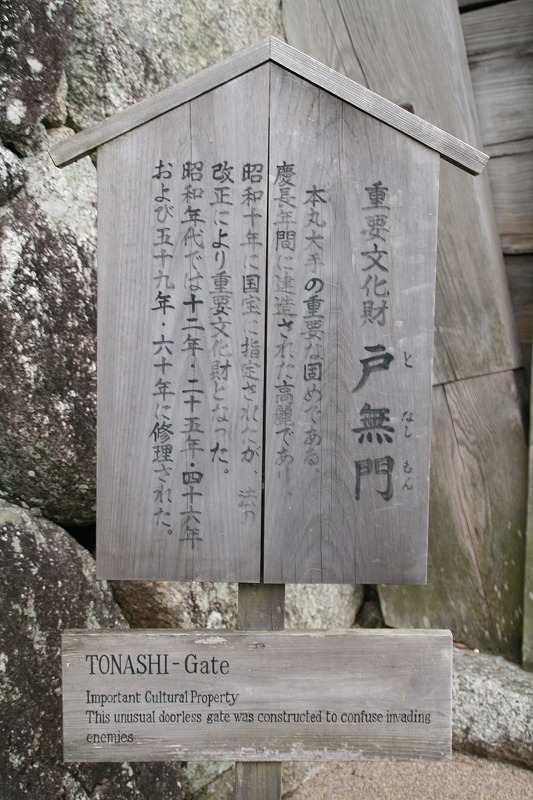 重要文化財 戸無門
と なし もん
本丸大手の重要な固めである。
慶長年間に建造された高麗であり、
昭和十年に国宝に指定されたが、法の
改正により重要文化財となった。
昭和年代では十二年・二十五年・四十六年
および五十九年・六十年に修理された。
TONASHI-Gate
Important Cultural Property
This unusual doorless gate was constructed to confuse invading
enemies